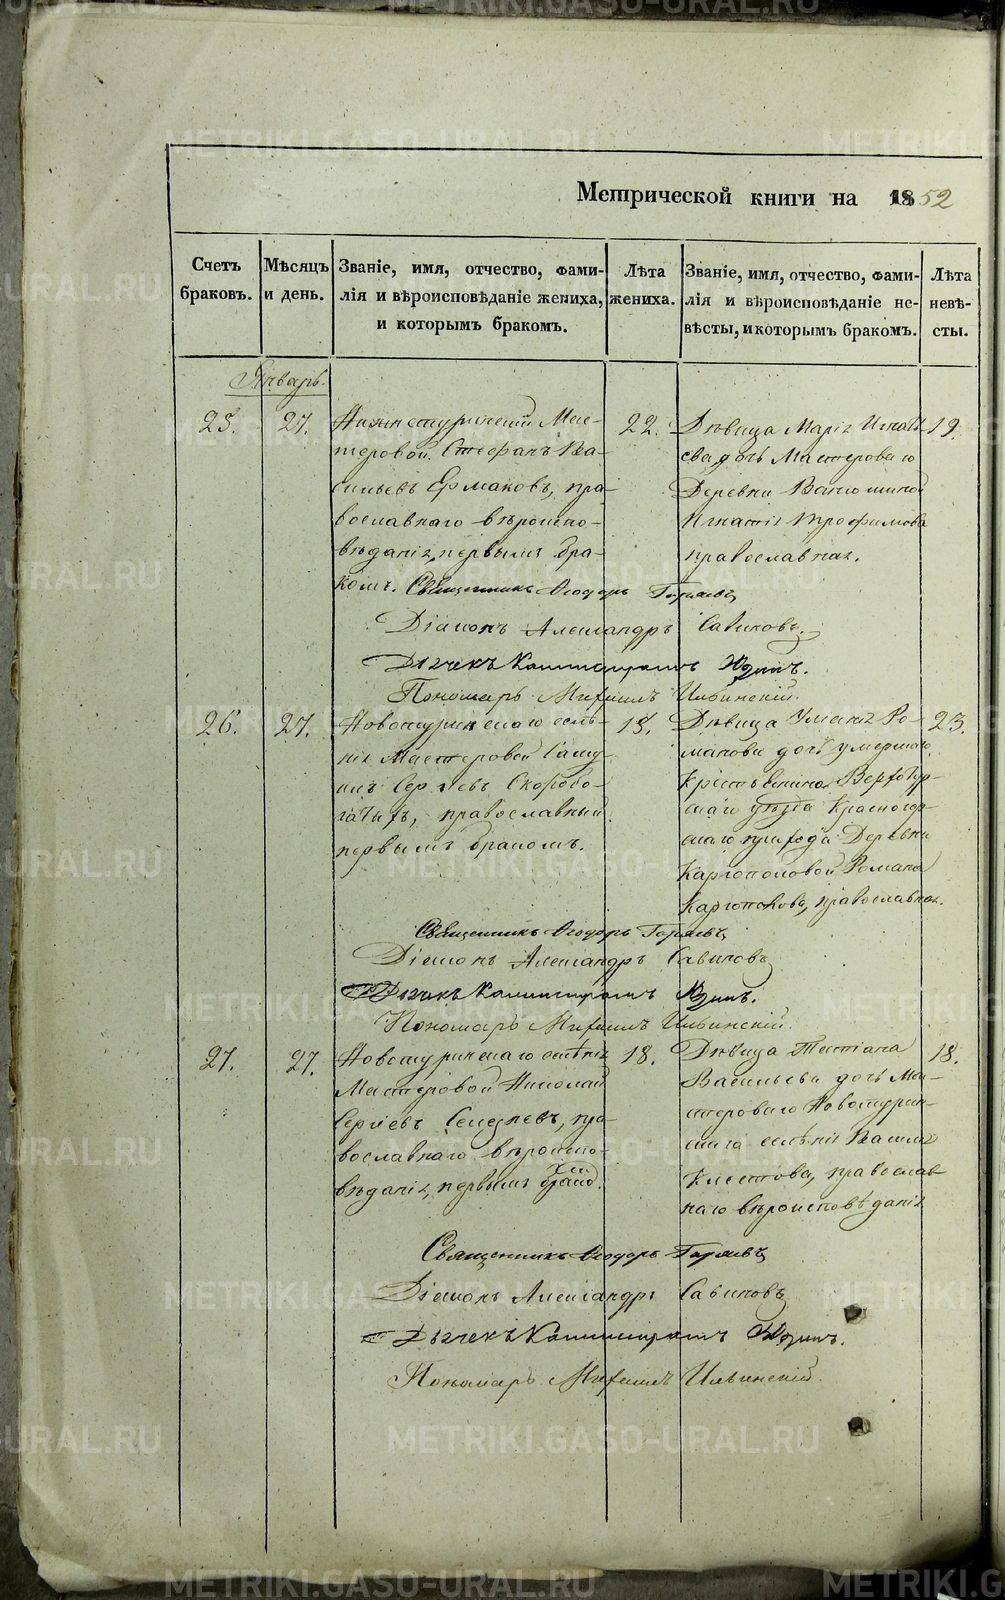 Метрической книги на 1852
Счетъ браковъ.
Мѣсяцъ и день.
Званіе, имя, отчество, фами-
лія и вѣроисповѣданіе жениха,
и которымъ бракомъ.
Лѣта жениха.
Званіе, имя, отчество, фами-
лія и вѣроисповѣданіе не-
вѣсты, и которымъ бракомъ.
Лѣта невѣ-
сты.
Январь.
25.
27.
Нижнетуринскій Мас-
теровой Стефанъ Ва-
сильевъ Ермаковъ, пра-
вославнаго вѣроиспо-
вѣданія, первымъ бра-
комъ.
22.
Дѣвица Марія Игнать-
ева, дочь Мастероваго
Деревни
Игнатія Трофимова
православная.
19.
Священникъ Ѳеодоръ
Діаконъ Александръ Савиновъ.
Дьячекъ Каллистратъ Юдинъ.
Пономарь Михаилъ Ильинскій.
26.
27.
Новотуринскаго селѣ-
нія Мастеровой
Сергѣевъ Скоробо-
гатыхъ, православный
первымъ бракомъ.
18.
Дѣвица Ро-
манова дочь умершаго
Крестьянина Верхотур-
скаго уѣзда Красногор-
скаго прихода Деревни
Каргополовой Романа
Каргополова, православная.
23.
Священникъ Ѳеодоръ
Діаконъ Александръ Савиновъ
Дьячекъ Каллистратъ Юдинъ.
Пономарь Михаилъ Ильинскій.
27.
27.
Новотуринскаго селѣнія
Мастеровой Николай
Сергѣевъ Селезневъ, пра-
вославнаго вѣроиспо-
вѣданія, первымъ
18.
Дѣвица Татіана
Васильева дочь Ма-
стероваго Новотурин-
скаго селѣнія Василья
православ-
наго вѣроисповѣданія
18.
Священникъ Ѳеодоръ
Діаконъ Александръ Савиновъ
Дьячекъ Каллистратъ Юдинъ.
Пономарь Михаилъ Ильинскій.
METRIKI.GASO-URAL.RU